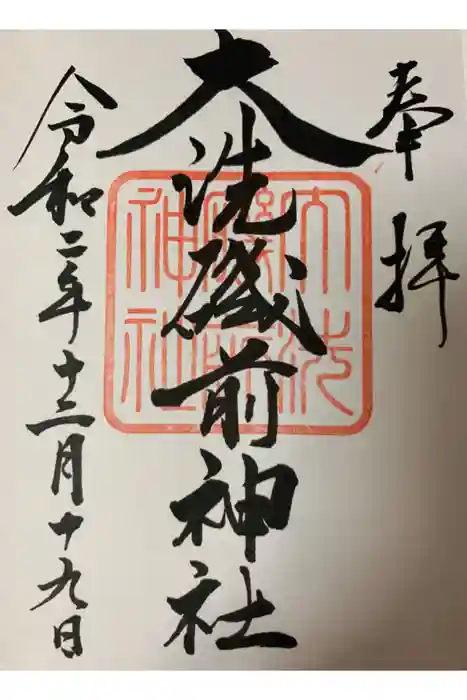 奉拝
大洗磯前神社
大洗磯前神社
令和二年十二月十九日